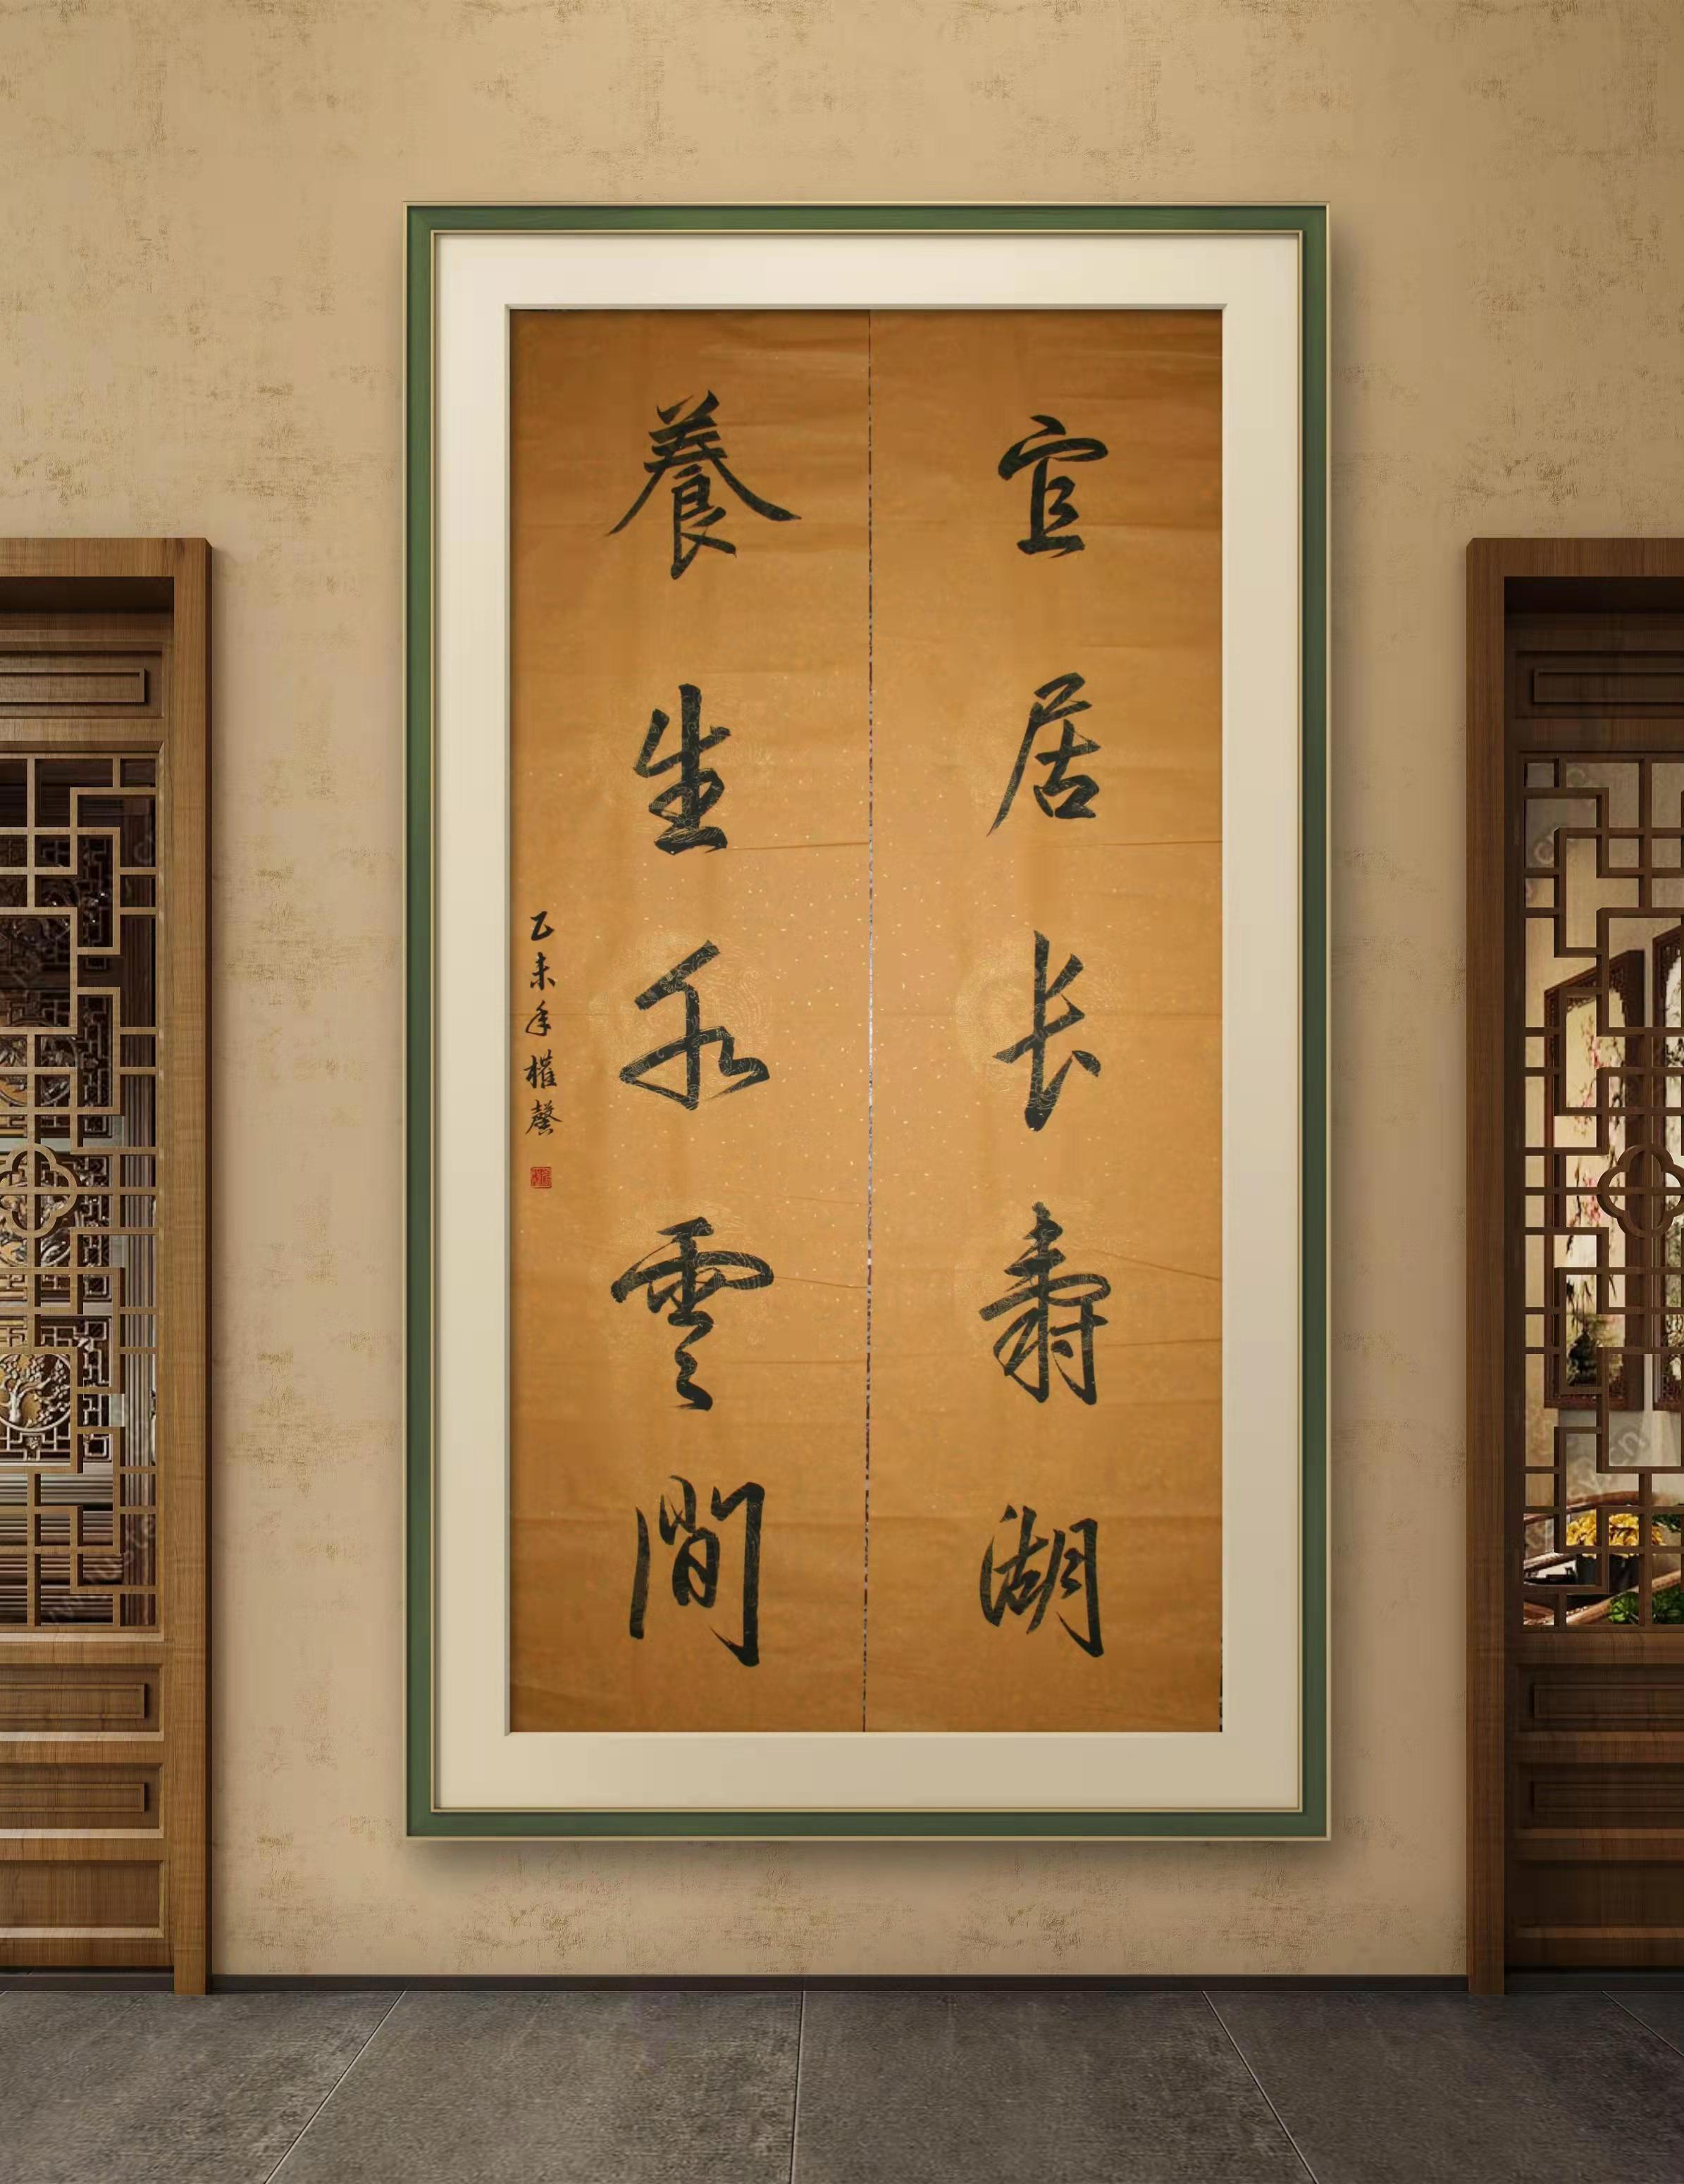 宜居长壽湖
養生水雲間
乙未年權馨